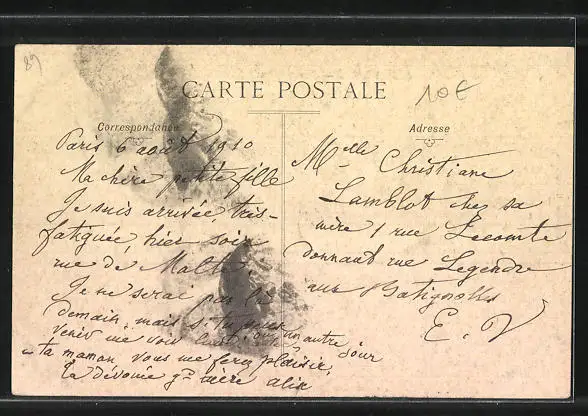 89
CARTE POSTALE
10€
Correspondance
Adresse
Paris 6 août 1910
Ma chère petite fille
Je suis arrivée très-
fatiguée, hier soir
rue de Malte.
Je ne serai pas là
demain, mais si tu peux
venir me voir lundi ou un autre jour
ta maman, vous me ferez plaisir,
ta dévouée gd mère alix
Melle Christiane
Lamblot chez sa
mère 1 rue Lecomte
donnant rue Legendre
aux Batignolles
E. V